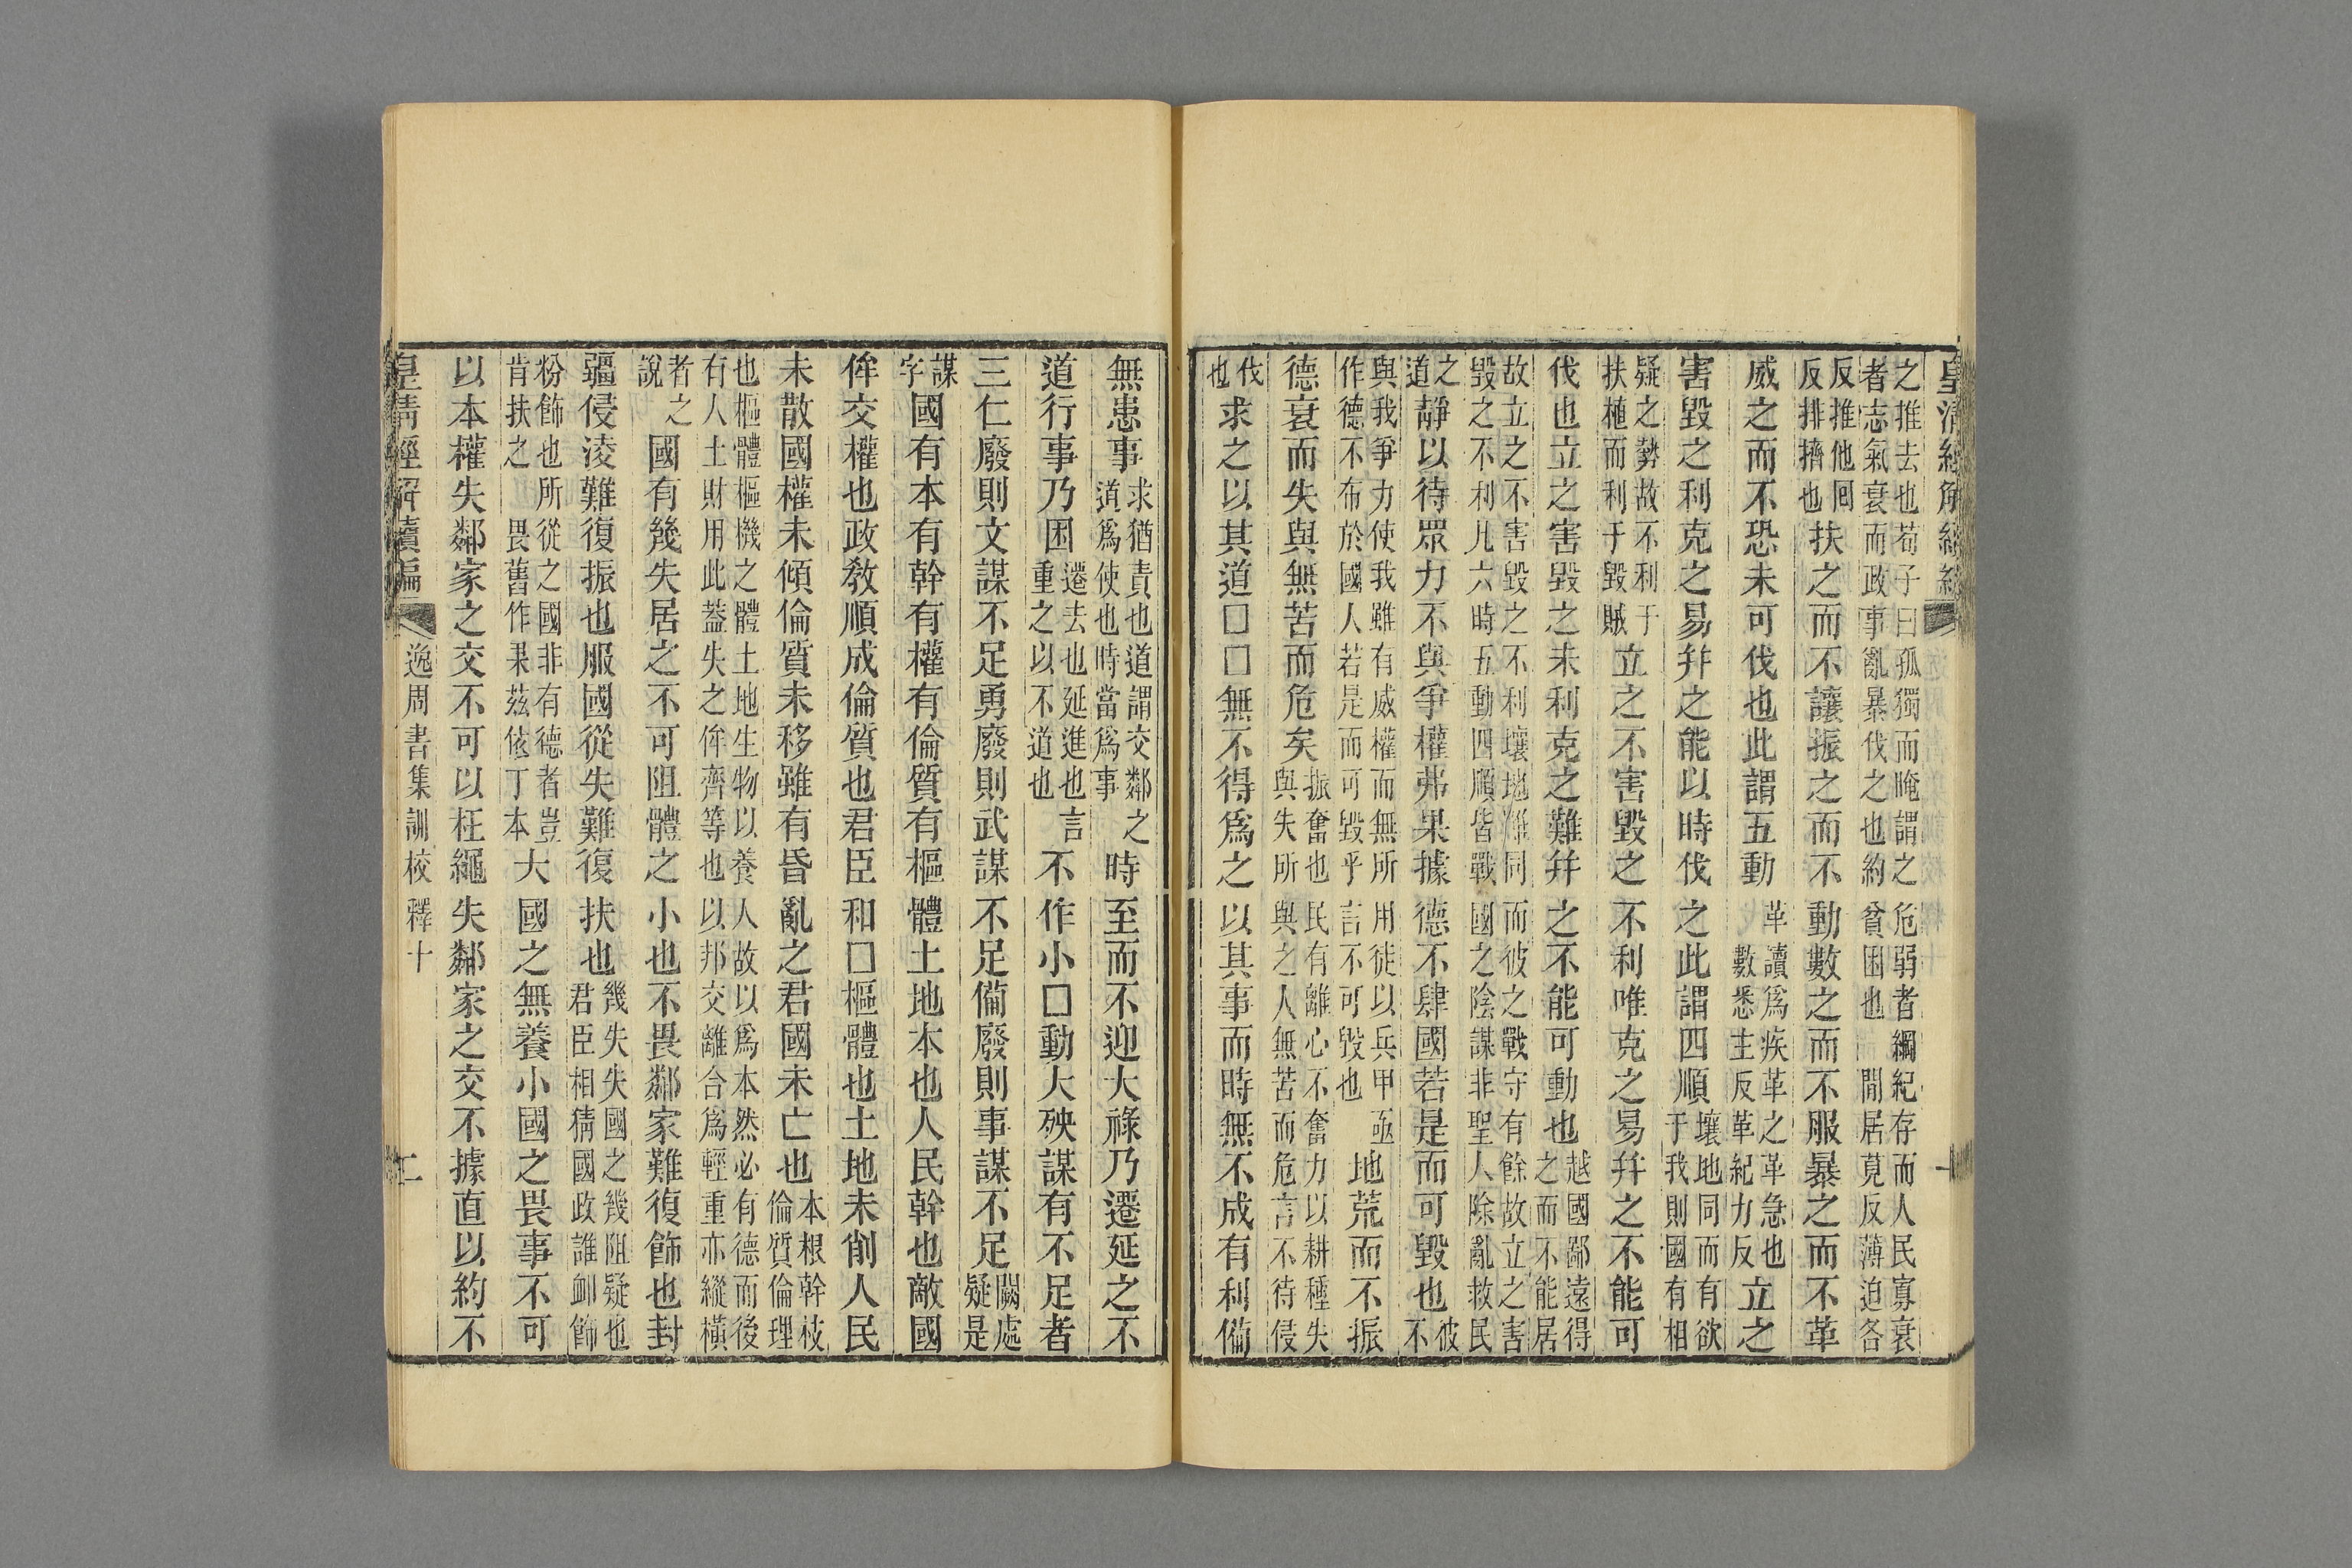 皇清經解續編
之推去也荀子曰孤獨而晻謂之危弱者綱紀存而人民寡衰者志氣衰而政事亂暴伐之也約貧困也閒居莧反薄迫各
反推他囘反排擠也扶之而不讓振之而不動數之而不服暴之而不革
威之而不恐未可伐也此謂五動革讀爲疾革之革急也數悉主反革紀力反立之
害毀之利克之易幷之能以時伐之此謂四順壤地同而有欲于我則國有相
疑之勢故不利于扶植而利于毀賊立之不害毀之不利唯克之易幷之不能可
伐也立之害毀之未利克之難幷之不能可動也越國鄙遠得之而不能居
故立之不害毀之不利壤地雖同而彼之戰守有餘故立之害毀之不利凡六時五動四順皆戰國之陰謀非聖人除亂救民
之道靜以待眾力不與爭權弗果據德不肆國若是而可毀也彼不
與我爭力使我雖有威權而無所用徒以兵甲亟作德不布於國人若是而可毀乎言不可毀也地荒而不振
德衰而失與無苦而危矣振奮也民有離心不奮力以耕種失與失所與之人無苦而危言不待侵
伐也求之以其道□□無不得爲之以其事而時無不成有利備
無患事求猶責也道謂交鄰之道爲使也時當爲事時至而不迎大祿乃遷延之不
道行事乃困遷去也延進也言重之以不道也不作小□動大殃謀有不足者
三仁廢則文謀不足勇廢則武謀不足備廢則事謀不足闕處疑是
謀字國有本有幹有權有倫質有樞體土地本也人民幹也敵國
侔交權也政教順成倫質也君臣和□樞體也土地未削人民
未散國權未傾倫質未移雖有昏亂之君國未亡也本根幹枝倫質倫理
也樞體樞機之體土地生物以養人故以爲本然必有德而後有人土財用此蓋失之侔齊等也以邦交離合爲輕重亦縱橫
者之說國有幾失居之不可阻體之小也不畏鄰家難復飾也封
疆侵淩難復振也服國從失難復扶也幾失失國之幾阻疑也君臣相猜國政誰卹飾
粉飾也所從之國非有德者豈肯扶之畏舊作果茲依丁本大國之無養小國之畏事不可
以本權失鄰家之交不可以枉繩失鄰家之交不據直以約不
皇清經解續編 逸周書集訓校釋十 二